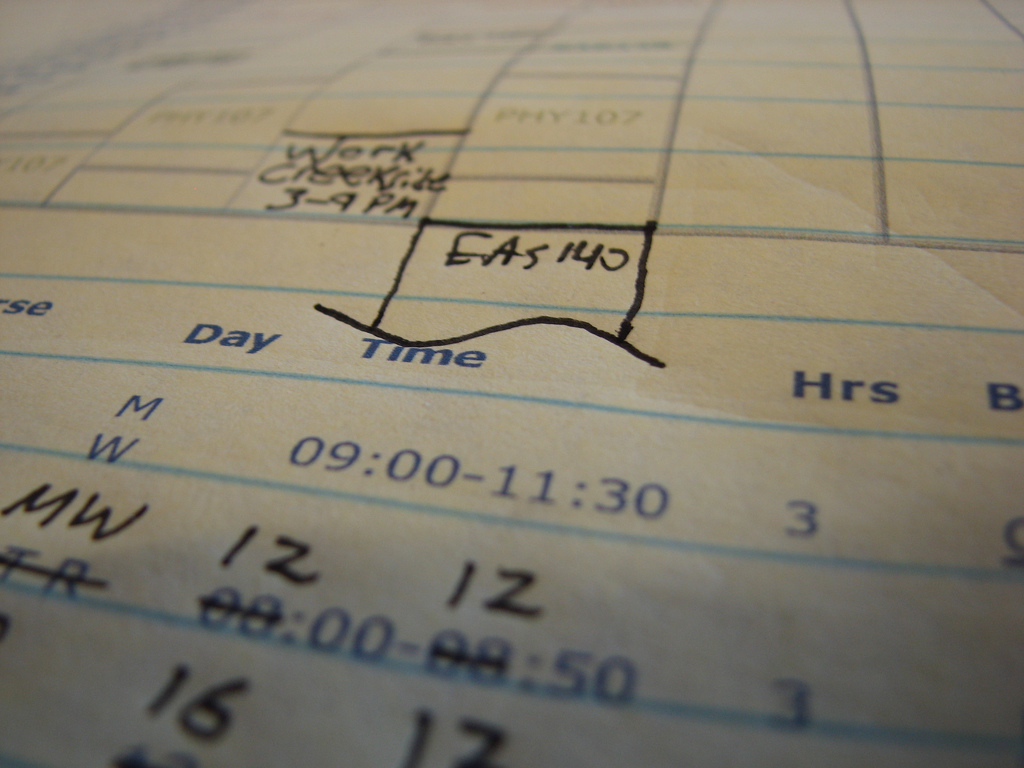 PHY107
PHY107
Y107
Work
Creekside
3-9 PM
EAS 140
rse Day Time Hrs B
M
W 09:00-11:30 3
MW 12 12
TR 08:00-08:50 3
16 12